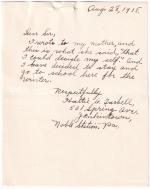 Aug 28, 1915.
Dear Sir,
I wrote to my mother, and
this is what she said, "that
I could decide my self." And
I have decided to stay and
go to school here for the
winter.
Respectfully
Isabell,
531 Spring Ave.,
Jenkintown,
Noble Station, Pa.